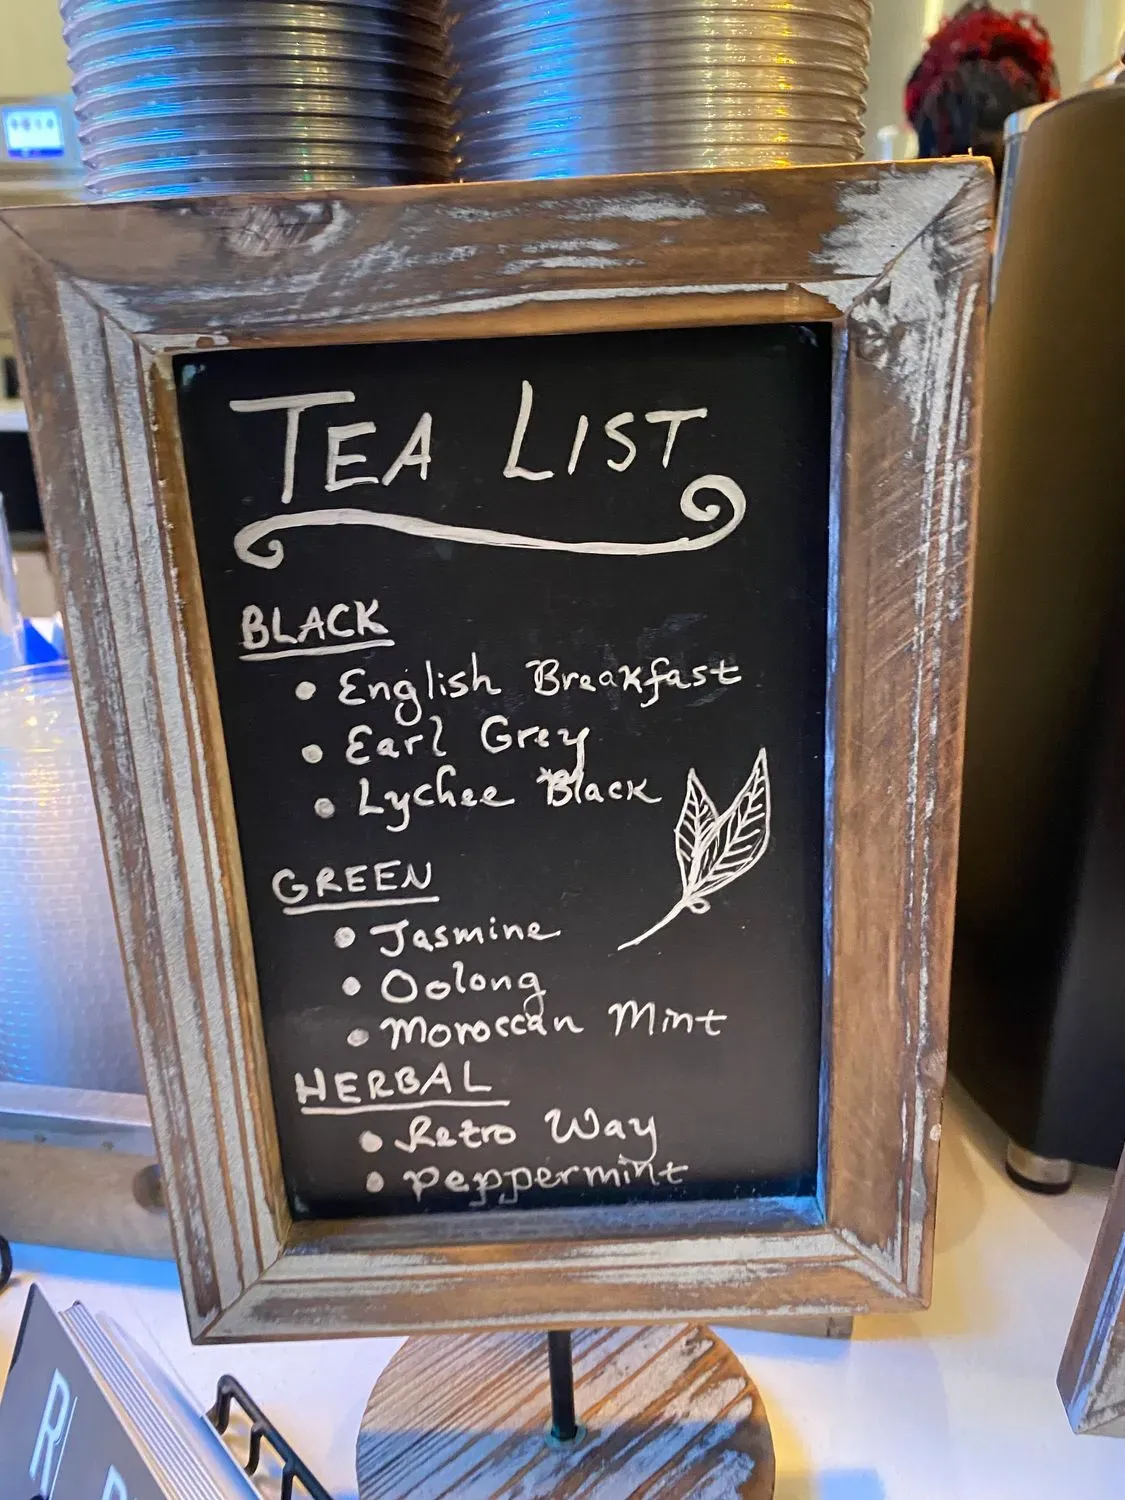 TEA LIST
BLACK
• English Breakfast
• Earl Grey
• Lychee Black
GREEN
• Jasmine
• Oolong
• Moroccan Mint
HERBAL
• Retro Way
• Peppermint
R